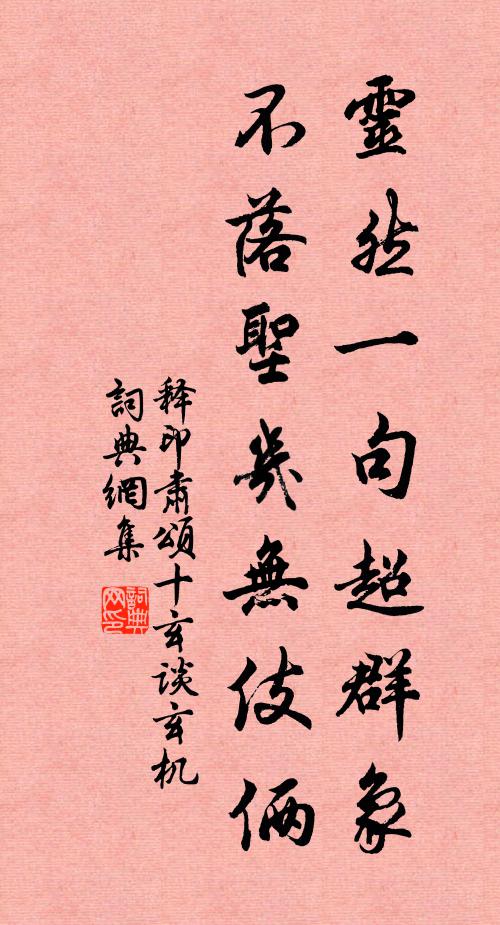 靈然一句超群象
不落聖幾無伎倆
释印肅頌十玄谈玄机
詞典網集
詞典
网印